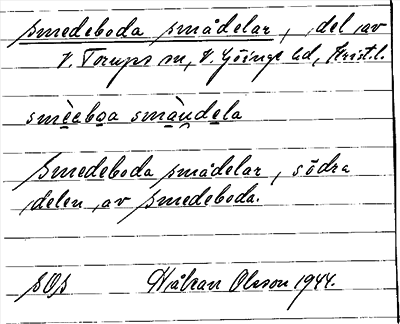 smedeboda smådelar, del av
V. Torups sn, V. Göinge hd, Krist. l.
smèeboa smàu̯dela
smedeboda smådelar, södra
delen av smedeboda.
sOs Håkan Olsson 1944.